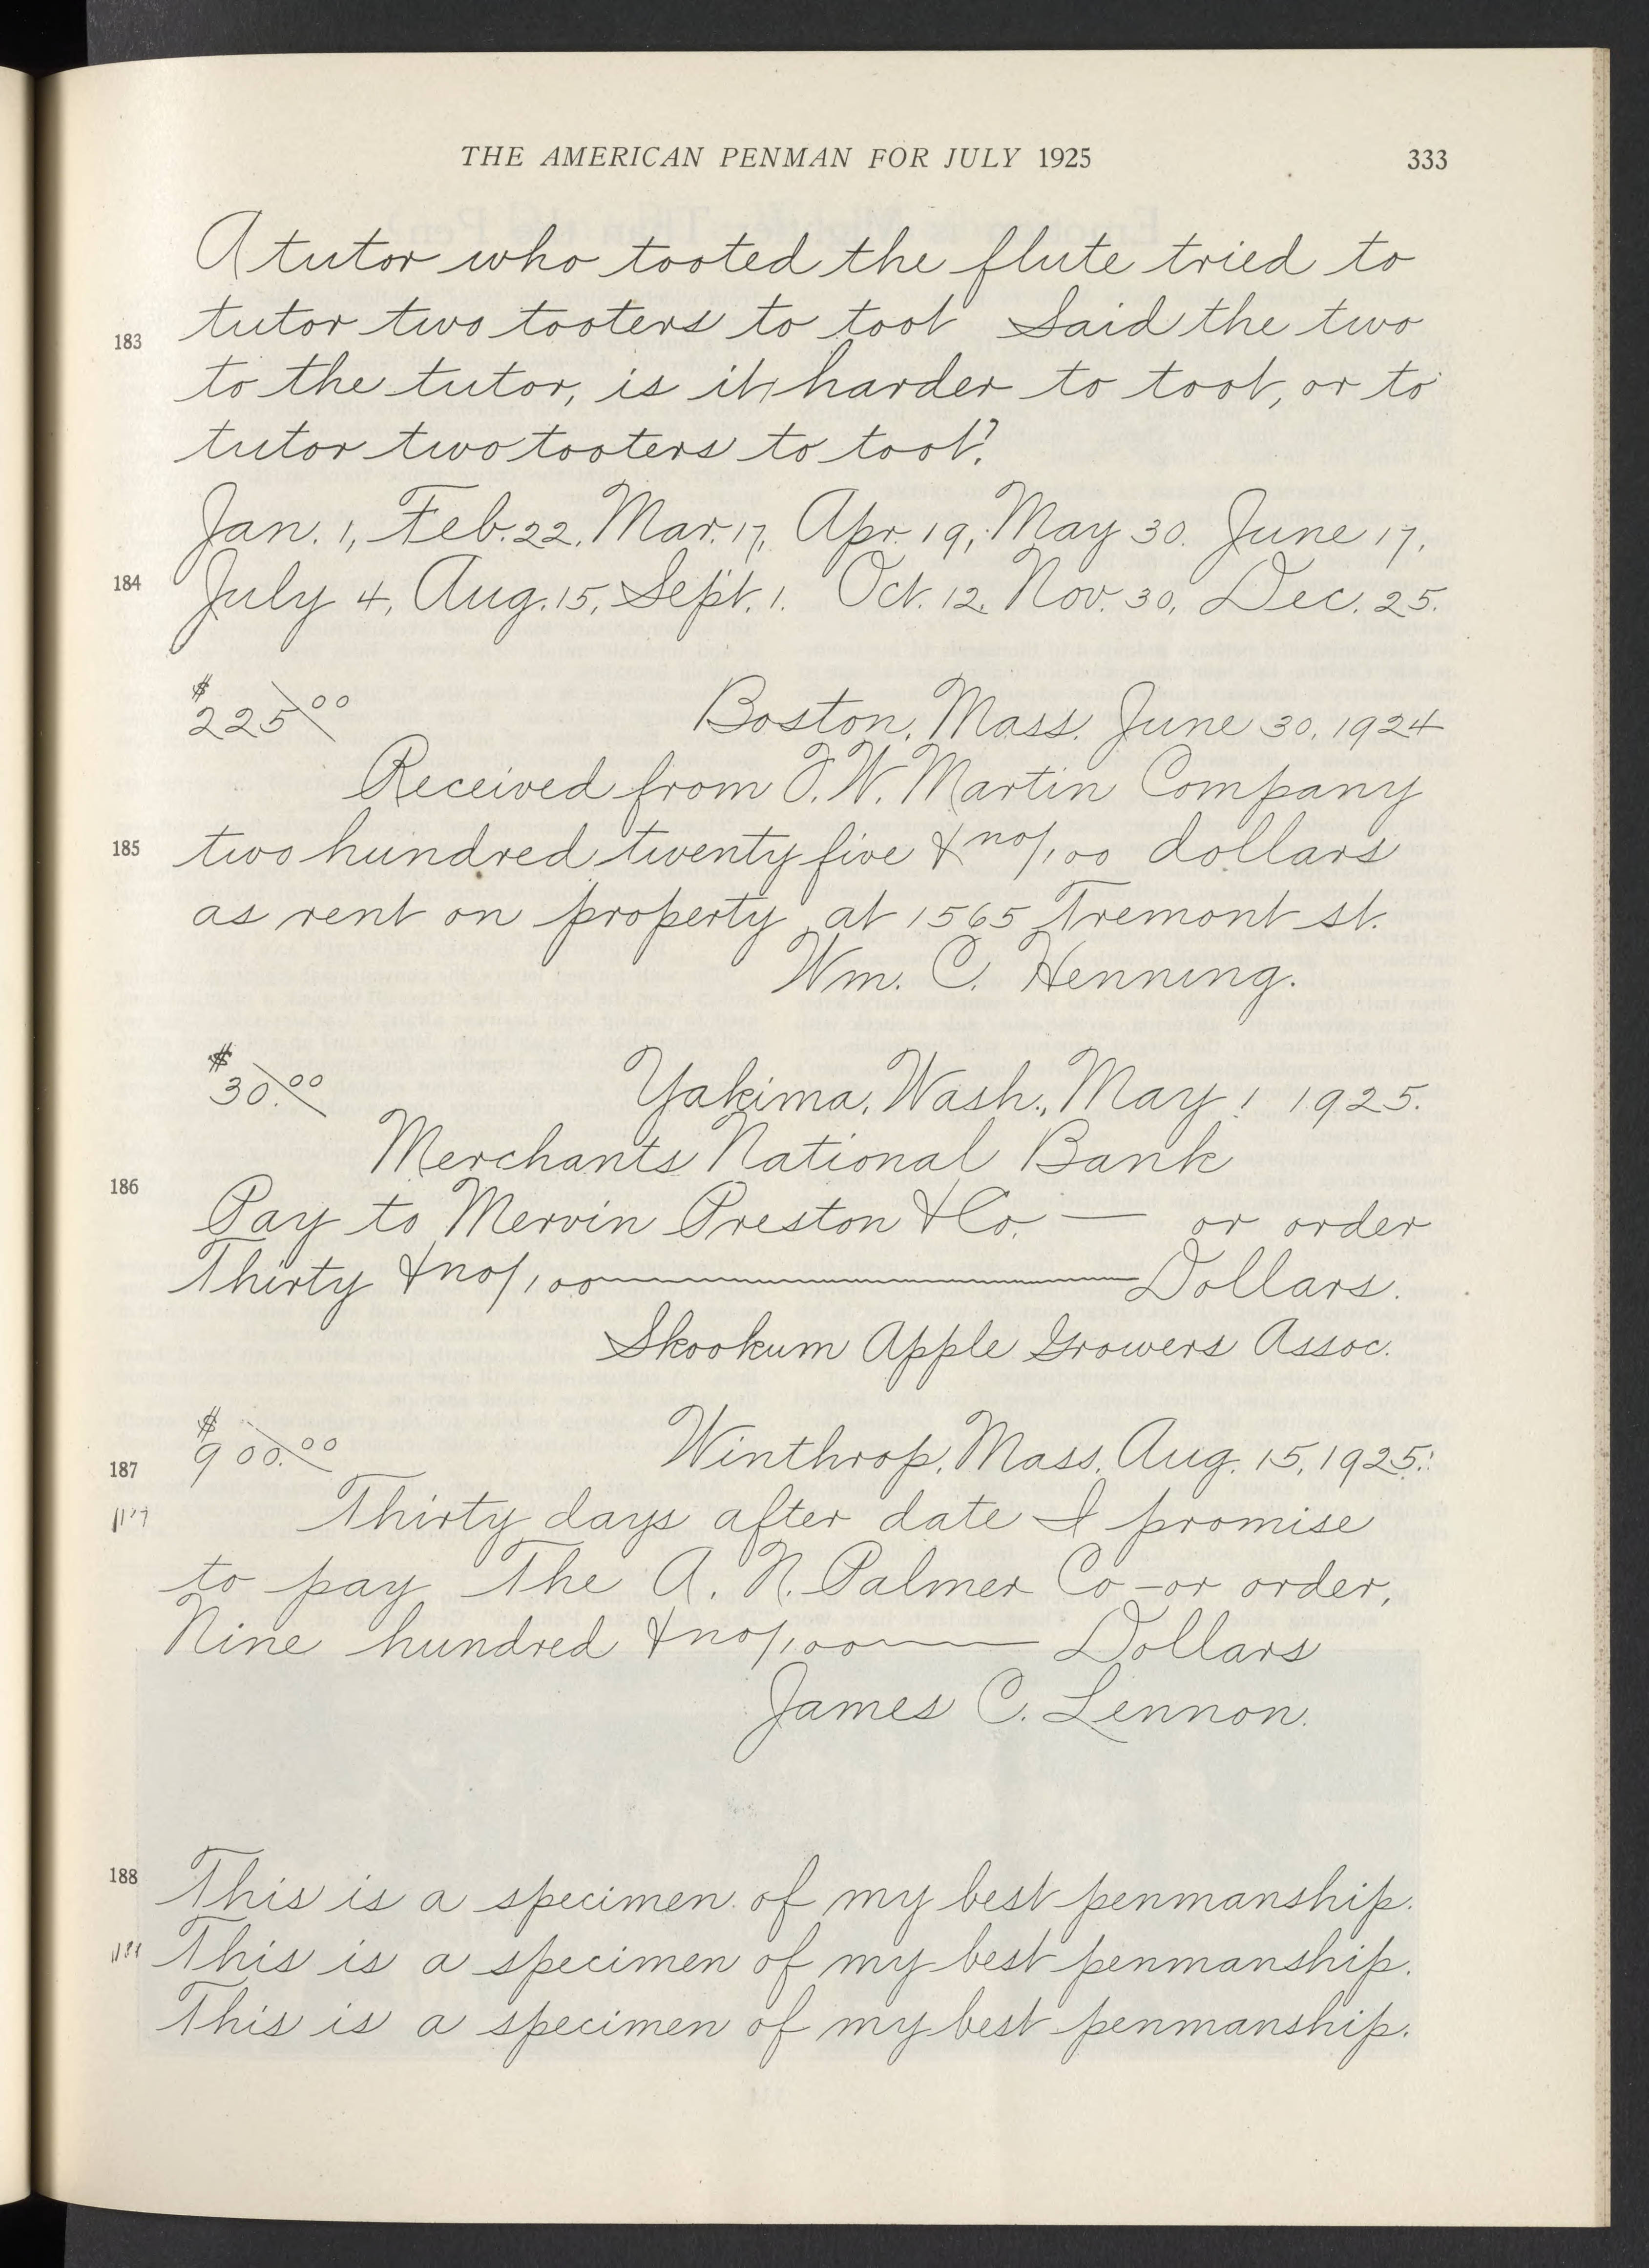 THE AMERICAN PENMAN FOR JULY 1925 333
A tutor who tooted the flute tried to
183 tutor two tooters to toot Said the two
to the tutor, is it harder to toot, or to
tutor two tooters to toot?
Jan. 1, Feb. 22, Mar. 17, Apr. 19, May 30. June 17,
184 July 4, Aug. 15, Sept. 1. Oct. 12, Nov. 30, Dec. 25.
$225.00 Boston, Mass. June 30, 1924
Received from F. W. Martin Company
185 two hundred twenty five & no/100 dollars
as rent on property at 1565 Tremont st.
Wm. C. Henning.
$30.00 Yakima, Wash., May 1 1925.
Merchants National Bank
186
Pay to Mervin Preston & Co. — or order
Thirty & no/100 Dollars.
Skookum Apple Growers Assoc.
$900.00 Winthrop, Mass. Aug. 15, 1925.
187
Thirty days after date I promise
to pay The A. N. Palmer Co – or order,
Nine hundred & no/100 Dollars
James C. Lennon.
188 This is a specimen of my best penmanship.
This is a specimen of my best penmanship.
This is a specimen of my best penmanship.